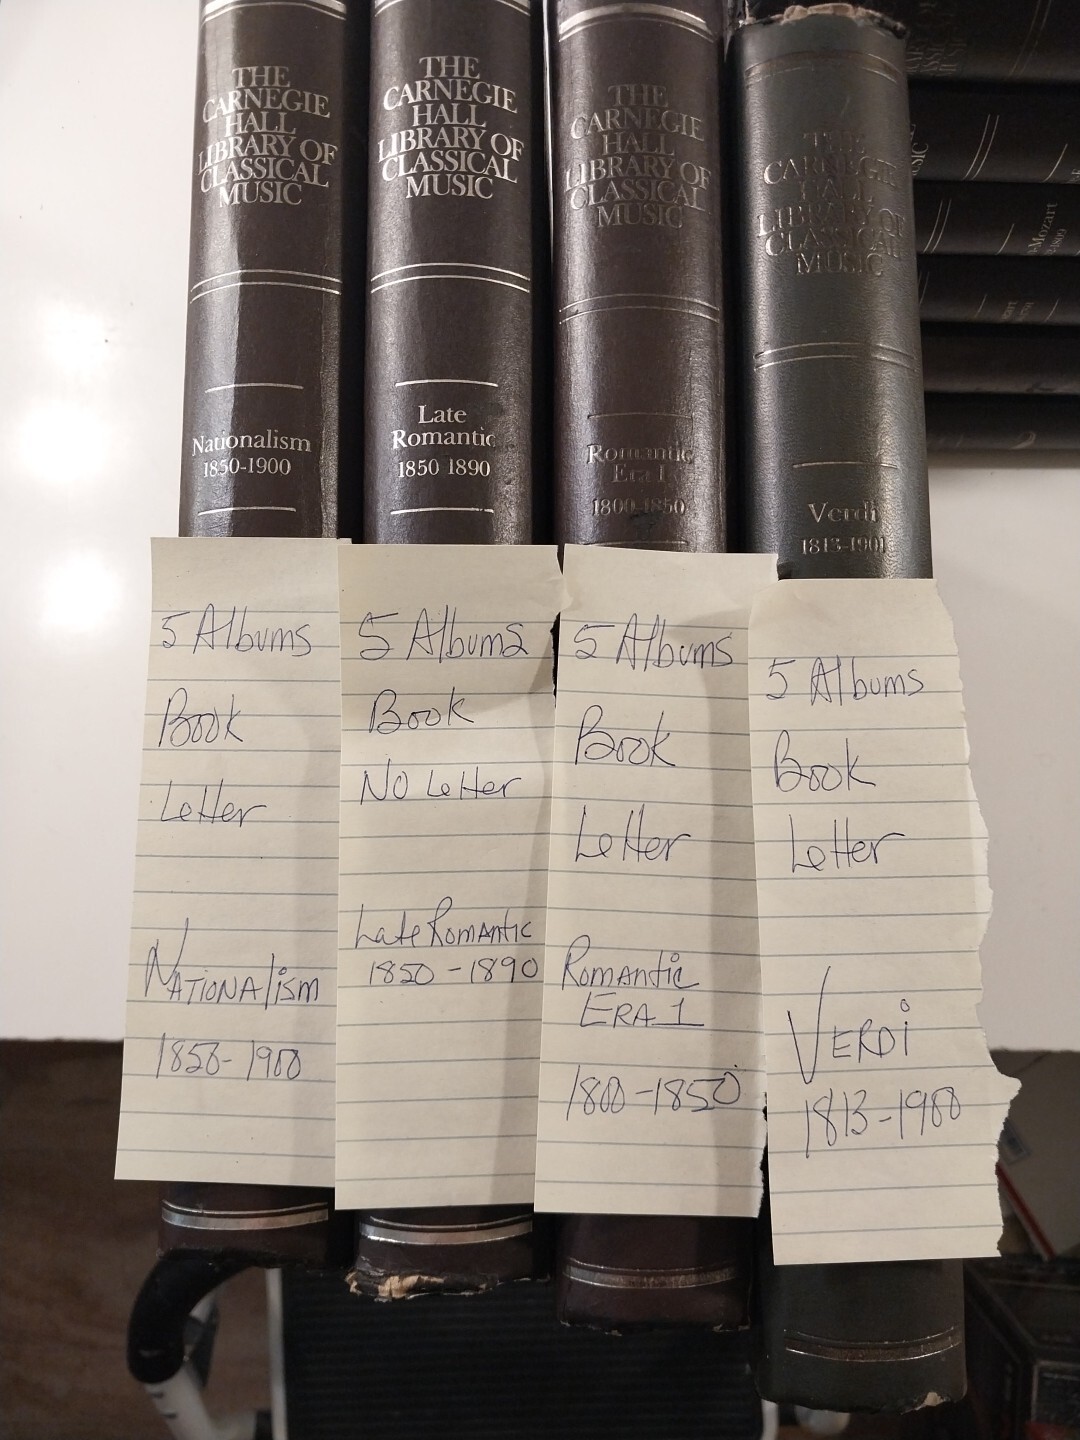 THE
CARNEGIE
HALL
LIBRARY OF
CLASSICAL
MUSIC
Nationalism
1850-1900
THE
CARNEGIE
HALL
LIBRARY OF
CLASSICAL
MUSIC
Late
Romantic
1850 1890
THE
CARNEGIE
HALL
LIBRARY OF
CLASSICAL
MUSIC
Romantic
Era I
1800-1850
THE
CARNEGIE
HALL
LIBRARY OF
CLASSICAL
MUSIC
Verdi
1813-1901
Mozart
5 Albums
Book
Letter
NATIONAlism
1850-1900
5 Albums
Book
No Letter
Late Romantic
1850-1890
5 Albums
Book
Letter
Romantic
ERA 1
1800-1850
5 Albums
Book
Letter
VERDi
1813-1900